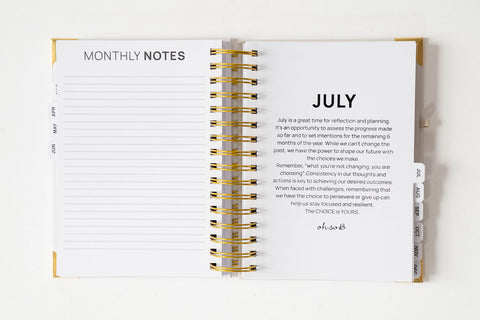 MONTHLY NOTES
APR
MAY
JUN
JULY
July is a great time for reflection and planning.
It's an opportunity to assess the progress made
so far and to set intentions for the remaining 6
months of the year. While we can't change the
past, we have the power to shape our future with
the choices we make.
Remember, "what you're not changing, you are
choosing". Consistency in our thoughts and
actions is key to achieving our desired outcomes.
When faced with challenges, remembering that
we have the choice to persevere or give up can
help us stay focused and resilient.
The CHOICE is YOURS.
JUL
AUG
SEP
OCT
NOV
DEC